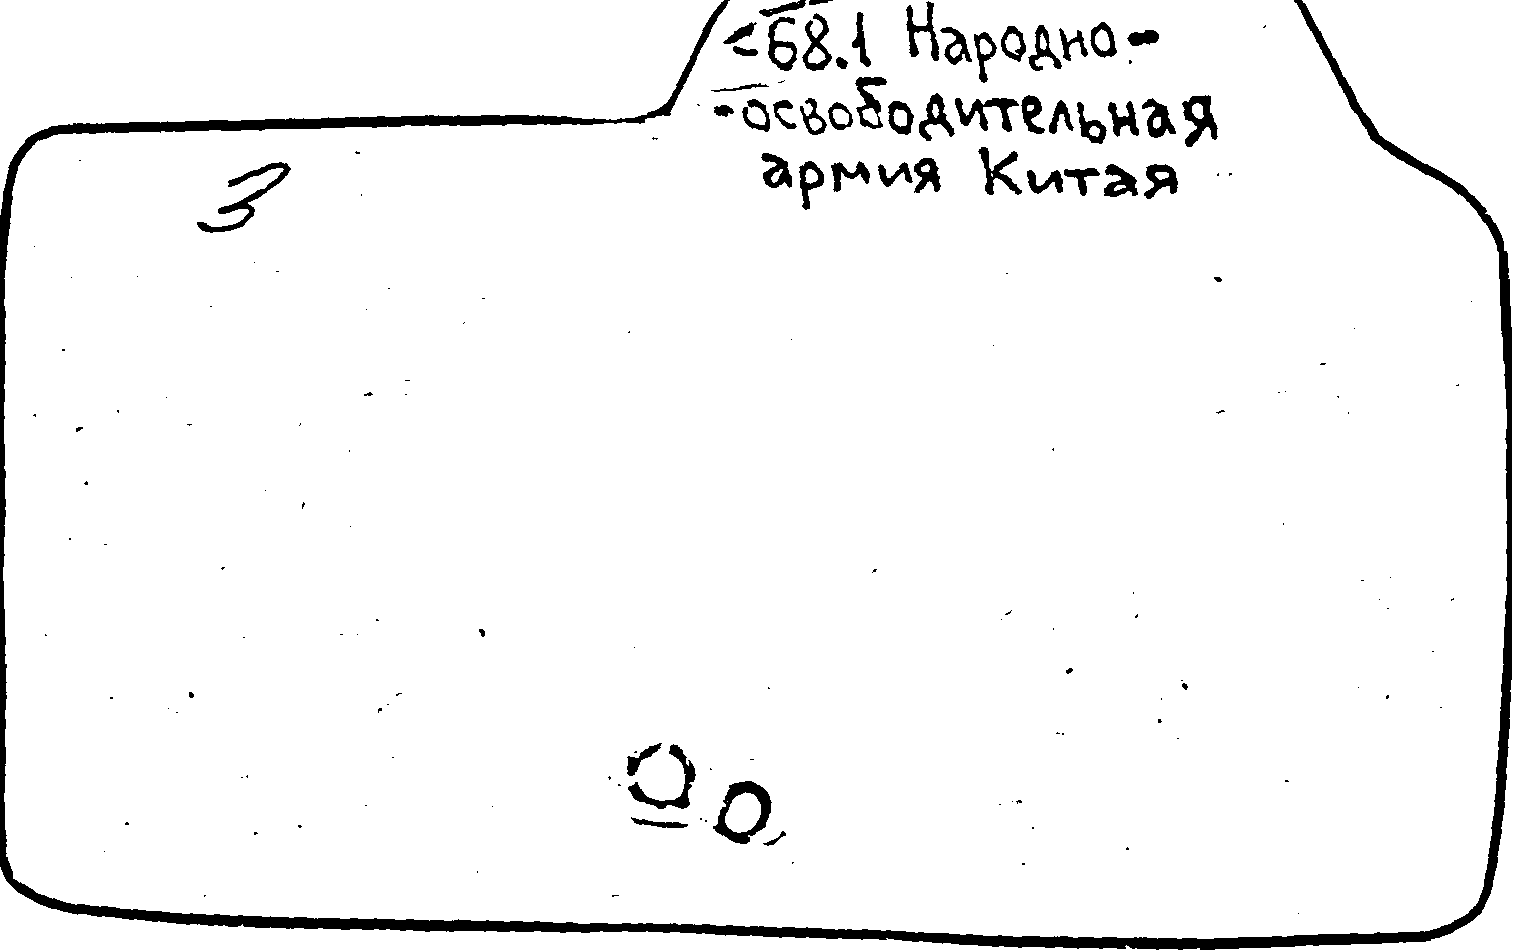 <68.1 Народно-
-освободительная
армия Китая
3